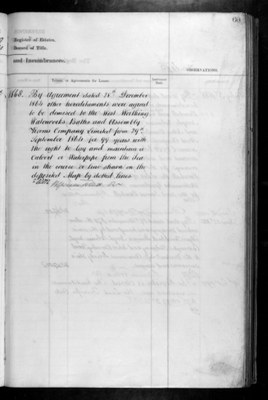 Register of Estates,
Record of Title,
and Incumbrances.
OBSERVATIONS.
1868. By Agreement dated 24th December
1864 other hereditaments were agreed
to be demised to the West Worthing
Waterworks Baths and Assembly
Rooms Company Limited from 29th
September 1864 for 99 years with
the right to lay and maintain a
Culvert or Waterpipe from the Sea
in the course or line shown on the
deposited Map by dotted lines